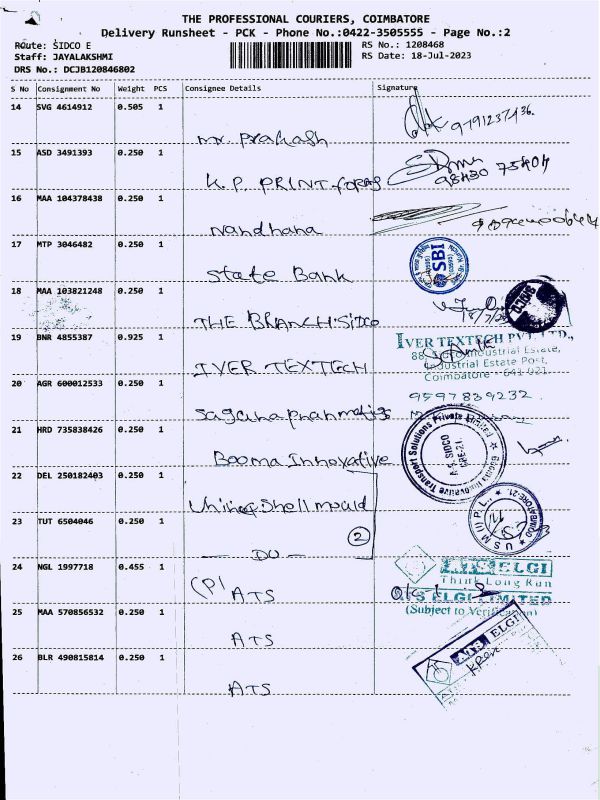 THE PROFESSIONAL COURIERS, COIMBATORE
Delivery Runsheet - PCK - Phone No.:0422-3505555 - Page No.:2
Route: SIDCO E
RS No.: 1208468
Staff: JAYALAKSHMI
RS Date: 18-Jul-2023
DRS No.: DCJB120846802
S No Consignment No Weight PCS Consignee Details Signature
14 SVG 4614912 0.505 1
Mr. Prakash
15 ASD 3491393 0.250 1
K.P. PRINT forms
98430 75404
16 MAA 104378438 0.250 1
Nandhana
17 MTP 3046482 0.250 1
State Bank
SBI
18 MAA 103821248 0.250 1
THE BRANCH SIDCO
SIDCO
19 BNR 4855387 0.925 1
IVER TEXTECH
IVER TEXTECH PVT. LTD.,
Industrial Estate,
Industrial Estate Post,
Coimbatore - 641 021
20 AGR 600012533 0.250 1
9597839232
21 HRD 735838426 0.250 1
Booma Innovative
Booma Innovative Transport Solutions Private Limited
SIDCO
CBE-21
22 DEL 250182403 0.250 1
Shell mould
U S M (I) P. L.,
23 TUT 6504046 0.250 1
2
- DO -
24 NGL 1997718 0.455 1
ATS
ATS ELGI
Think Long Run
ATS ELGI LIMITED
(Subject to Verification)
25 MAA 570856532 0.250 1
ATS
ATS ELGI
26 BLR 490815814 0.250 1
ATS